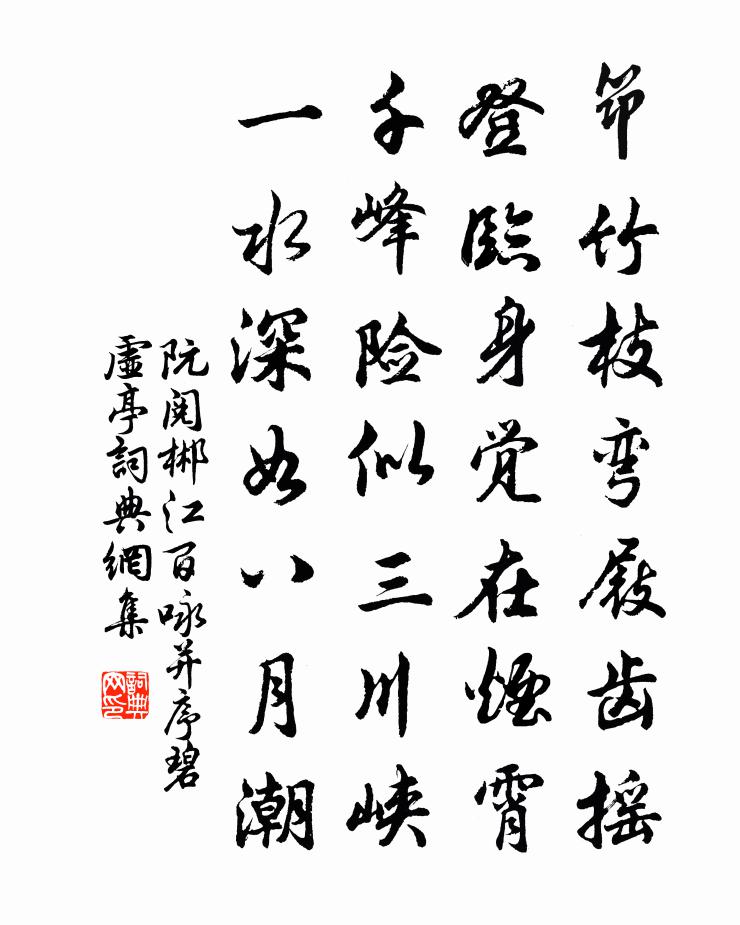 筇竹枝弯屐齿摇
登临身觉在烟霄
千峰险似三川峡
一水深如八月潮
阮阅郴江百咏并序碧
虚亭詞典網集
詞典網印